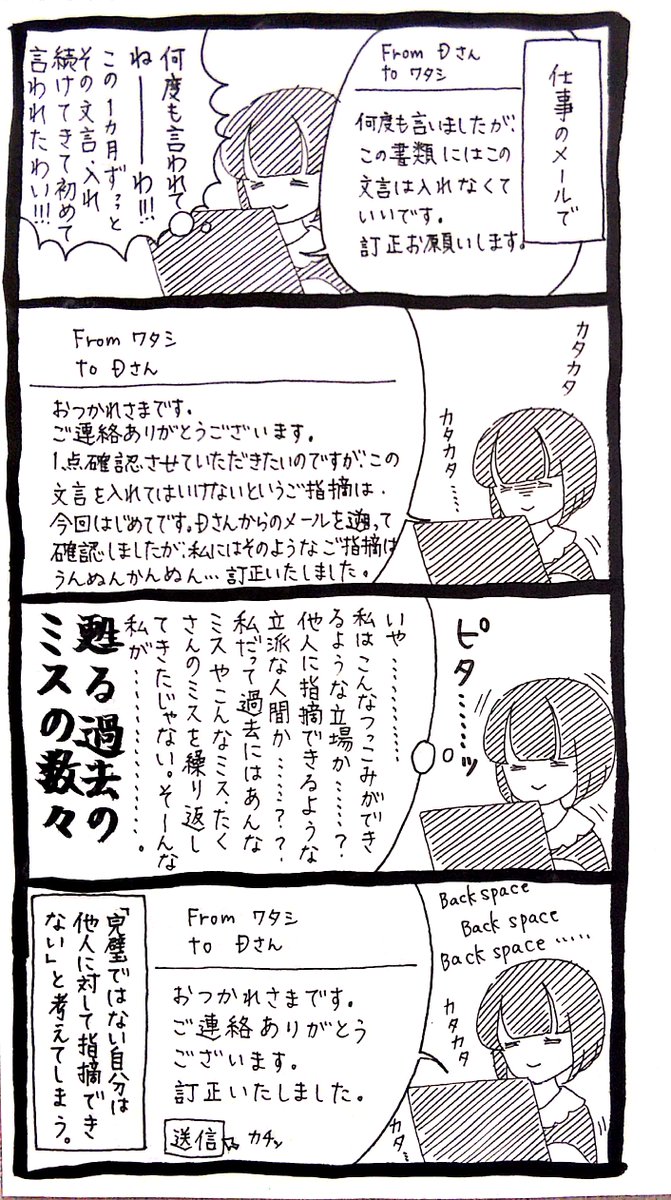 仕事のメールで
From Đさん
to ワタシ
何度も言いましたが、
この書類にはこの
文言は入れなくて
いいです。
訂正お願いします。
何度も言われて
ねーーーわ!!!
この1ヵ月ず〜っと
その文言、入れ
続けてきて初めて
言われたわい!!!
カタカタ
カタカタ……
From ワタシ
to Đさん
おつかれさまです。
ご連絡ありがとうございます。
1点確認させていただきたいのですが、この
文言を入れてはいけないというご指摘は、
今回はじめてです。Đさんからのメールを遡って
確認しましたが、私にはそのようなご指摘は
うんぬんかんぬん…訂正いたしました。
ピタ……ッ
いや…………
私はこんなつっこみができ
るような立場か……?
他人に指摘できるような
立派な人間か……??
私だって過去にはあんな
ミスやこんなミス、たく
さんのミスを繰り返し
てきたじゃない。そーんな
私が…………。
甦る過去の
ミスの数々
Back space
Back space
Back space ……
カタカタ
カタ…
From ワタシ
to Đさん
おつかれさまです。
ご連絡ありがとう
ございます。
訂正いたしました。
送信
カチッ
「完璧ではない自分は
他人に対して指摘でき
ない」と考えてしまう。